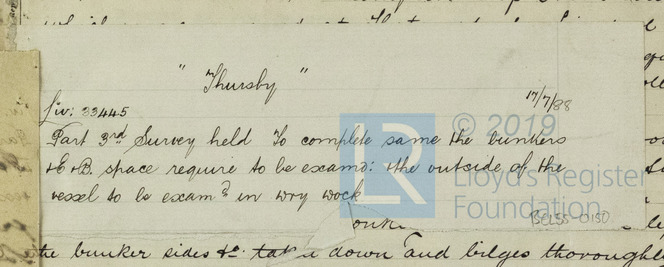 " Thursby "
17/7/88
Liv: 33445
Part 3rd Survey held To complete same the bunkers
+E+B. space require to be examd: + the outside of the
vessel to be examd in dry dock
© 2019
LR
Lloyd's Register
Foundation
BCL55-0150
the bunker sides &c. taken down and bilges thoroughly